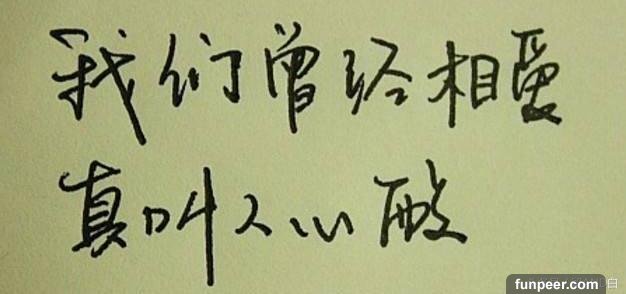 我们曾经相爱
真叫人心酸
funpeer.com